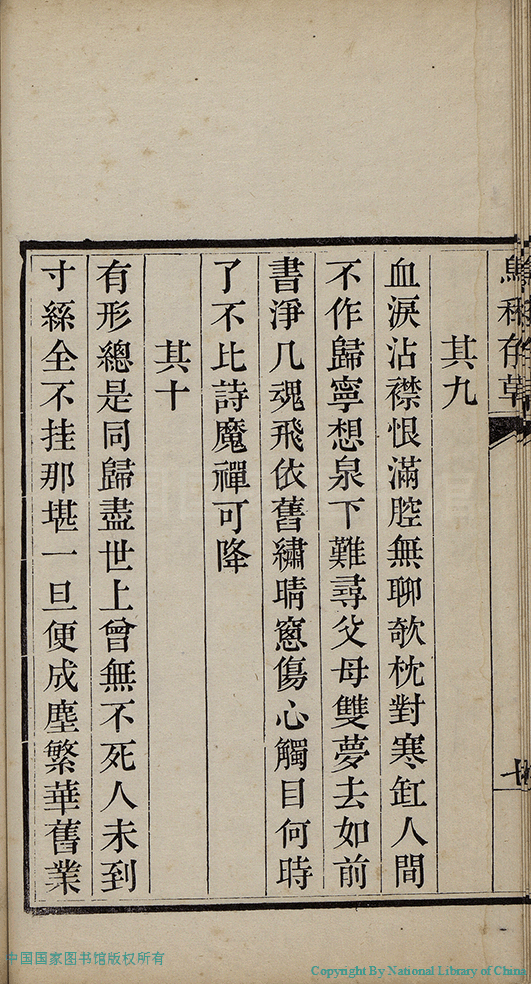 存草
其九
血淚沾襟恨滿腔無聊欹枕對寒缸人間
不作歸寧想泉下難尋父母雙夢去如前
書淨几魂飛依舊繡晴窻傷心觸目何時
了不比詩魔禪可降
其十
有形總是同歸盡世上曾無不死人未到
寸絲全不挂那堪一旦便成塵繁華舊業
中国国家图书馆版权所有
Copyright By National Library of China